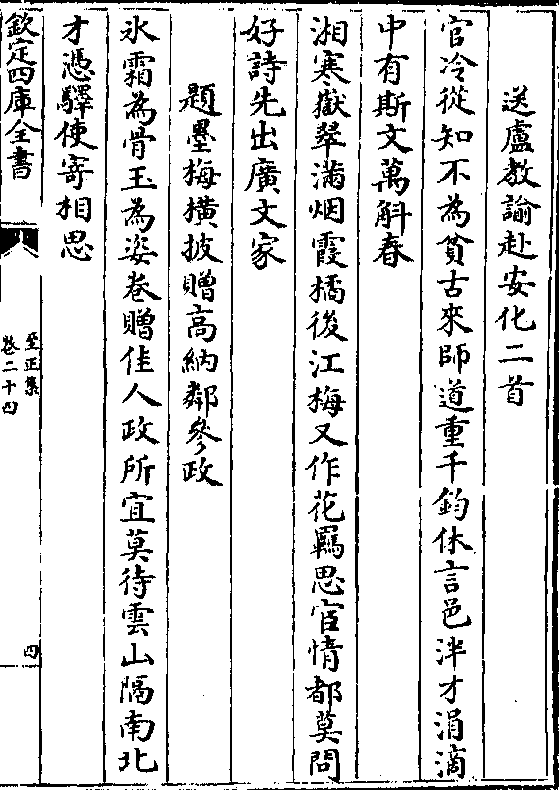 送盧教諭赴安化二首
官冷從知不為貧古來師道重千鈞休言邑泮才涓滴
中有斯文萬斛春
湘寒嶽翠滿烟霞橘後江梅又作花羈思宦情都莫問
好詩先出廣文家
題墨梅横披贈高納鄰參政
氷霜為骨玉為姿卷贈佳人政所宜莫待雲山隔南北
才憑驛使寄相思
欽定四庫全書
至正集
卷二十四
四